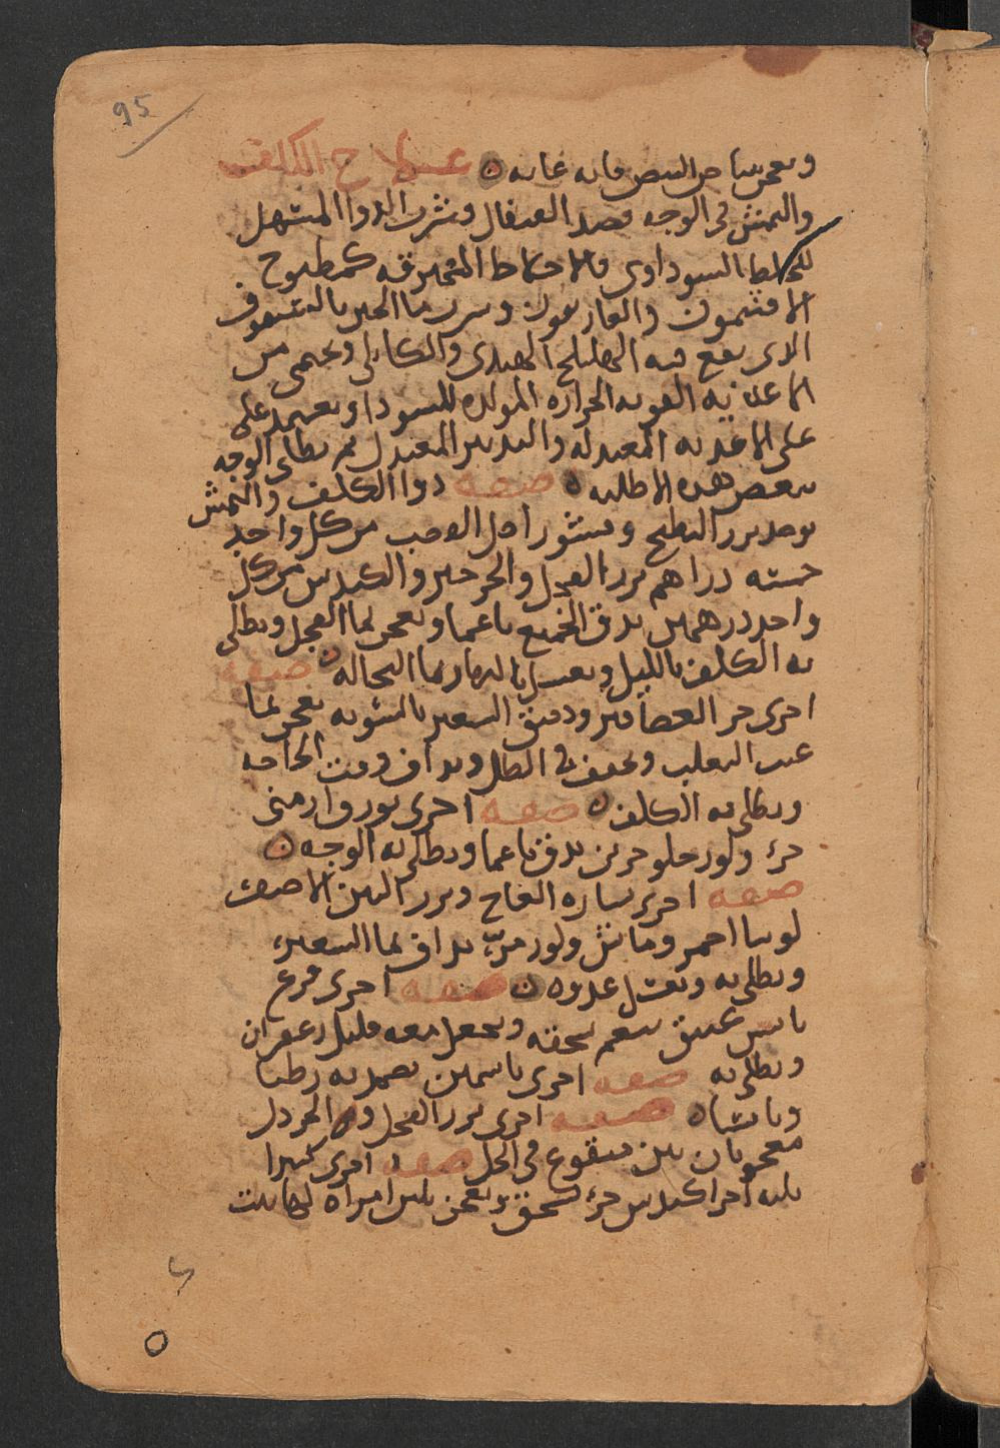 95
ويعجن ببياض البيض فانه غايه ۞ علاج الكلف
والنمش فى الوجه فصد القيفال وشرب الدوا المسهل
للخلط السوداوى والاخلاط المحترقه كمطبوخ
الافتيمون والغاريقون وشرب ما الجبن بالسفوف
الذى يقع فيه الهليلج الهندى والكابلى ويحمى من
الاغذيه القويه الحراره المولده للسودا ويعتمد على
على الاغذيه المعتدله والتدبير المعتدل ثم يطلى الوجه
ببعض هذه الاطليه ۞ صفه دوا الكلف والنمش
يوخذ بزر البطيخ وقشور اصل القصب من كل واحد
خمسه دراهم بزر الفجل والجرجير والكندس من كل
واحد درهمين يدق الجميع ناعما ويعجن بما الفجل ويطلى
به الكلف بالليل ويغسل بالنهار بما النخاله ۞ صفه
اخرى خر العصافير ودقيق الشعير بالسويه يعجن بما
عنب الثعلب ويجفف فى الظل ويداف وقت الحاجه
ويطلى به الكلف ۞ صفه اخرى بورق ارمنى
جزء ولوز حلو جزين يدق ناعما ويطلى به الوجه ۞
صفه اخرى نشاره العاج وبزر التين الاصفر
لوبيا احمر وماش ولوز مر يداف بما الشعير
ويطلى به ويغسل غدوه ۞ صفه اخرى قرع
يابس عتيق ينعم سحقه ويجعل معه قليل زعفران
ويطلى به صفه اخرى ياسمين يضمد به رطبا
ويابسا ۞ صفه اخرى بزر الفجل والخردل
معجونان بتين منقوع فى الخل صفه اخرى كثيرا
ثلثه اجزا كندس جزء يسحق ويعجن بلبن امراه لها بنت